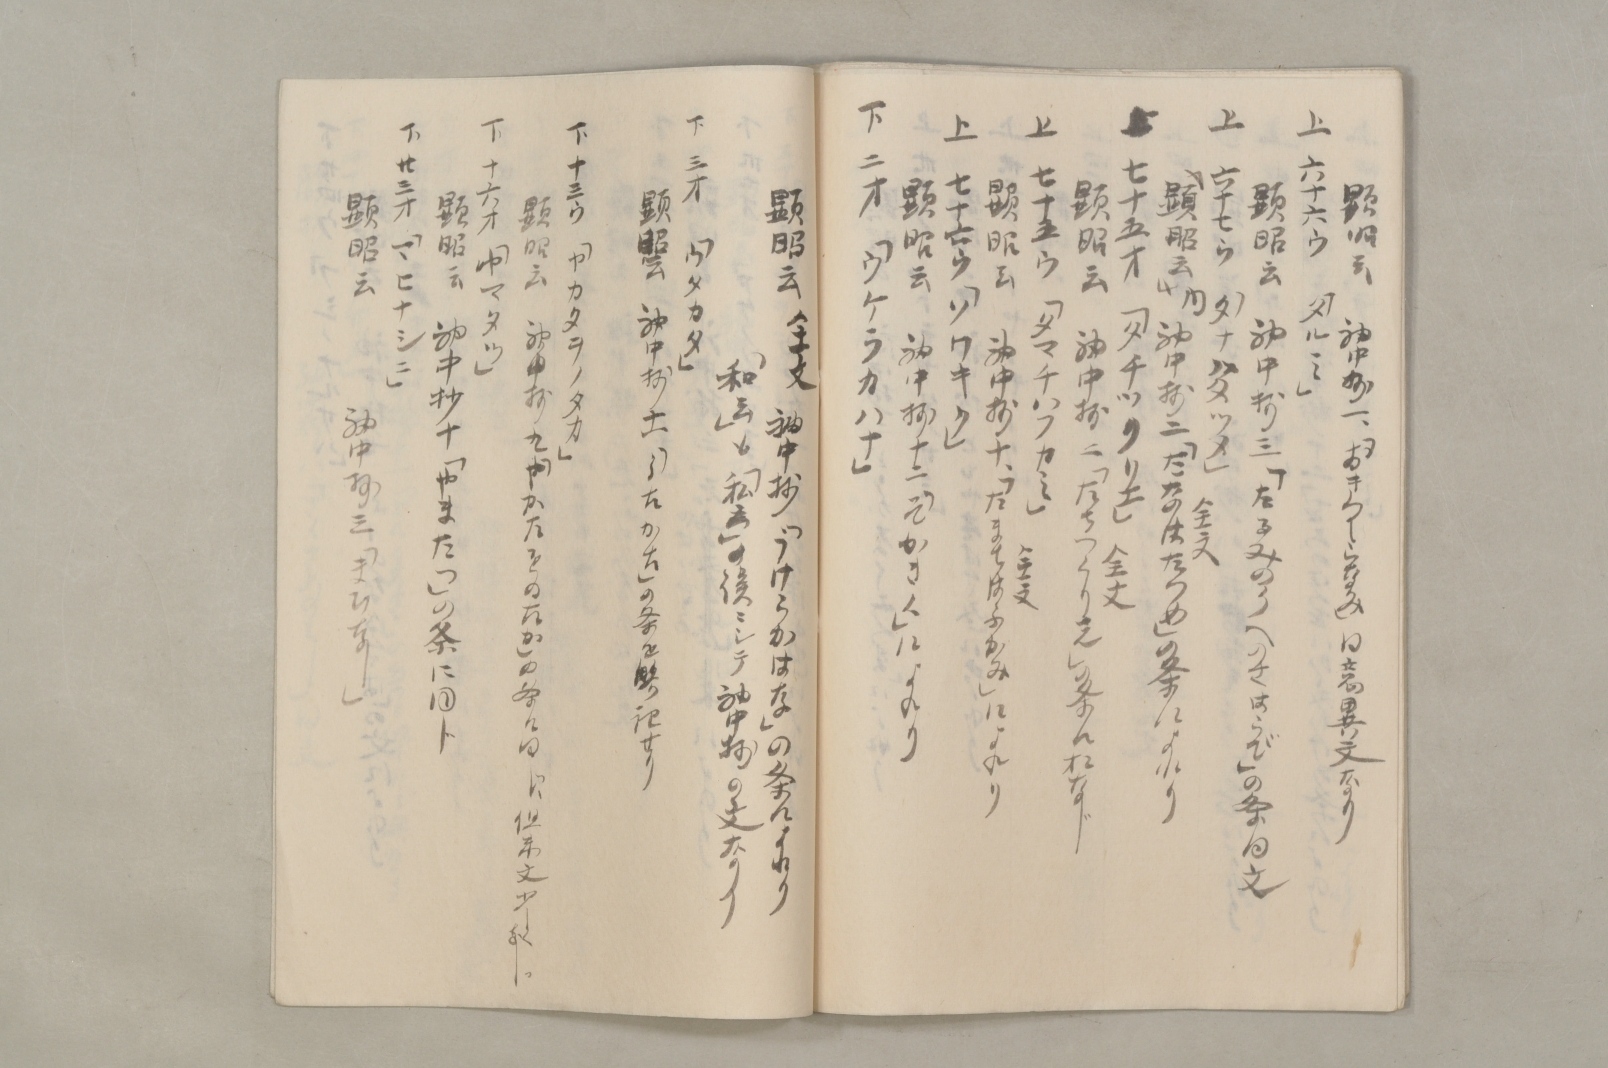 顕昭云 袖中抄一、「おきつしらなみ」 同意異文なり
上 六十六ウ 「タルミ」
顕昭云 袖中抄三「たるみのうへのさはらび」の条 同文
上 六十七ウ 「タナバタツメ」 全文
「顕昭云」内 袖中抄二「たなばたつめ」の条によれり
上 七十五オ 「タチツクリ士」 全文
顕昭云 袖中抄二「たちつくり 」の条におなじ
上 七十五ウ 「タマチハフカミ」 全文
顕昭云 袖中抄十、「たまちはふかみ」によれり
上 七十六ウ 「ソワキウ」
顕昭云 袖中抄十二「そかきく」によれり
下 二オ 「ウケラカハナ」
顕昭云 全文 袖中抄「うけらがはな」の条によれり
「和云」も「私云」の 袖中抄の文なり
下 三オ 「ウタカタ」
顕昭云 袖中抄十一「うたかた」の条を 記せり
下 十三ウ 「ヤカタヲノタカ」
顕昭云 袖中抄九「やかたをのたか」の条に同じ 但末文少
下 十六オ 「ヤマタツ」
顕昭云 袖中抄十「やまたつ」の条に同ト
下 廿三オ 「マヒナシニ」
顕昭云 袖中抄三「まひなし」